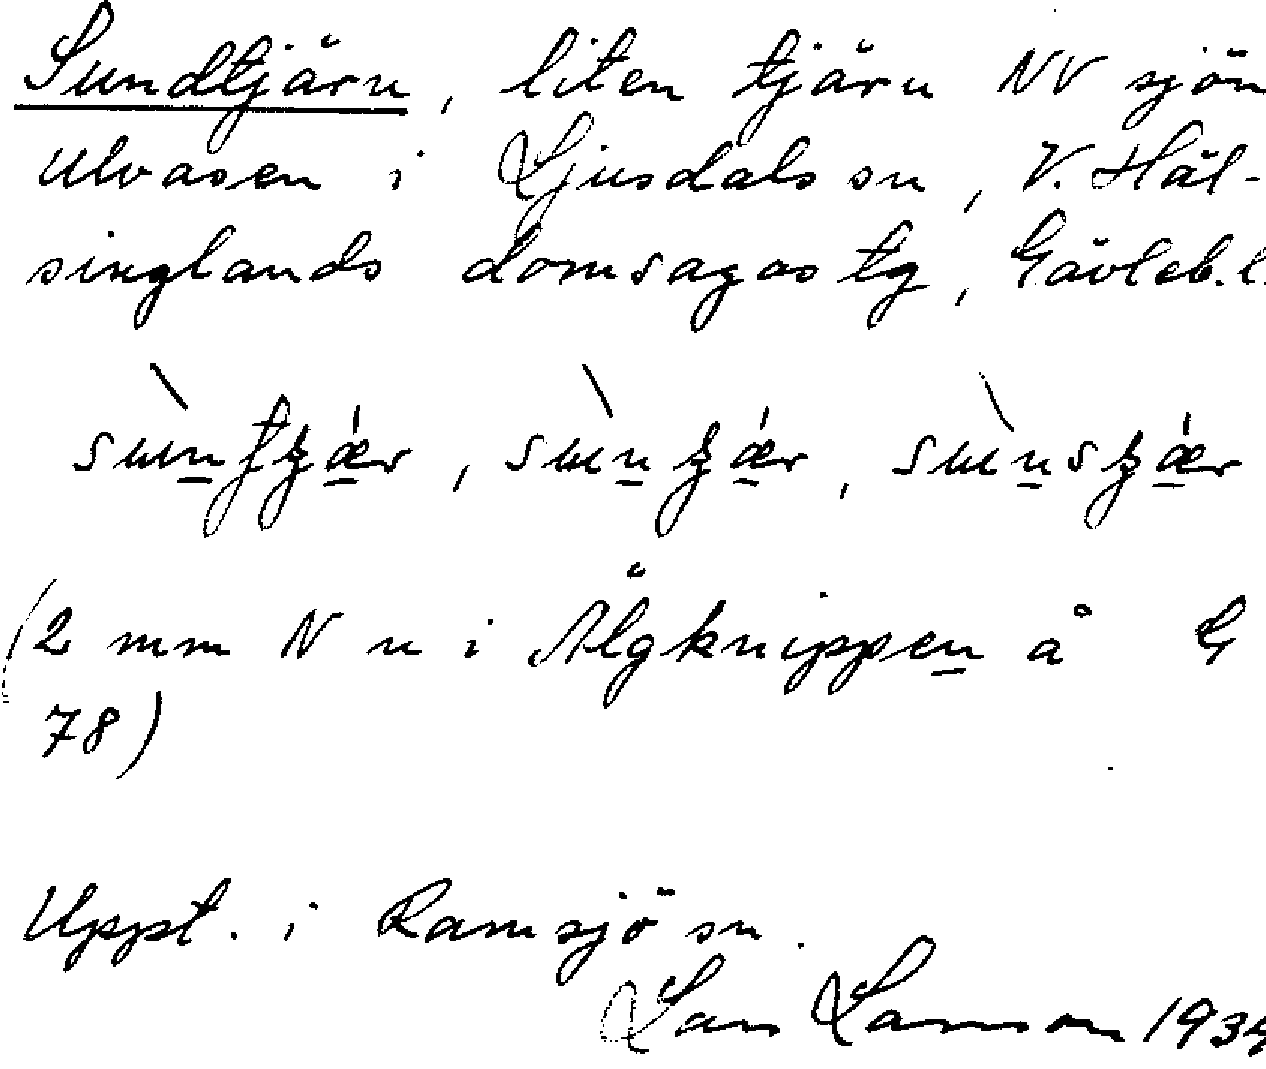 Sundtjärn, liten tjärn NV sjön
Ulvasen i Ljusdals sn, V. Häl-
singlands domsagas tg, Gävleb. l.
(2 mm N n i Älgknippen å G
78)
Uppt. i Ramsjö sn.
Lars Larsson 193